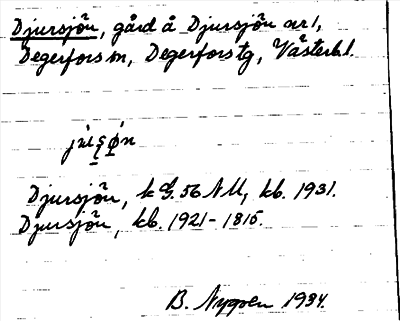 Djursjön, gård å Djursjön nr 1,
Degerfors sn, Degerfors tg, Västerb. l.
Djursjön, k G. 56 NU, kb. 1931.
Djursjön, kb. 1921-1815.
B. Nygren 1934.